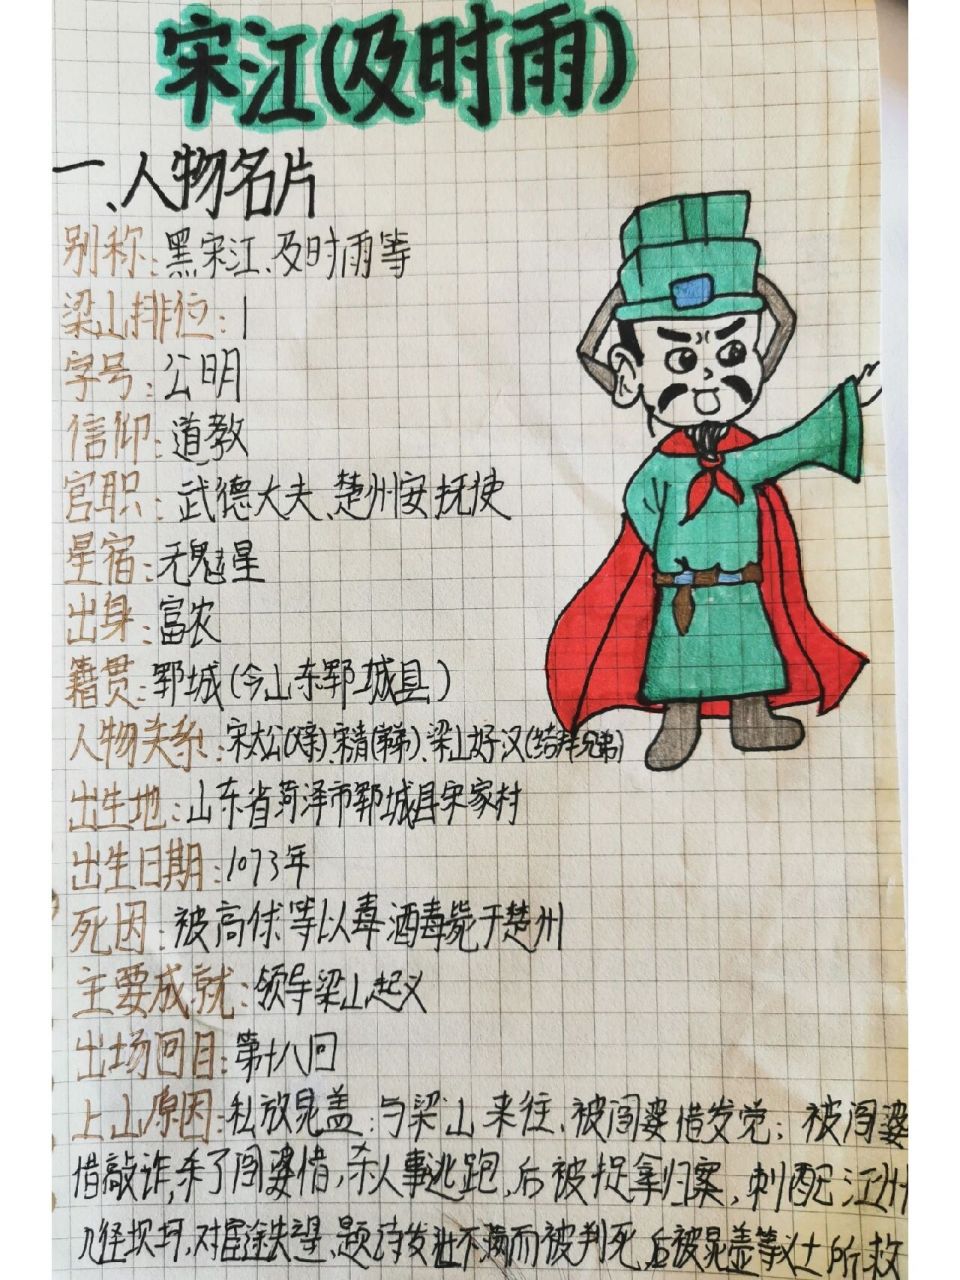 宋江(及时雨)
一、人物名片
别称:黑宋江、及时雨等
梁山排位:1
字号:公明
信仰:道教
官职:武德大夫、楚州安抚使
星宿:天魁星
出身:富农
籍贯:郓城(今山东郓城县)
人物关系:宋太公(父亲)、宋清(弟弟)、梁山好汉(结拜兄弟)
出生地:山东省菏泽市郓城县宋家村
出生日期:1073年
死因:被高俅等以毒酒毒毙于楚州
主要成就:领导梁山起义
出场回目:第十八回
上山原因:私放晁盖;与梁山来往,被阎婆惜发觉;被阎婆
惜敲诈,杀了阎婆惜,杀人事逃跑,后被捉拿归案,刺配江州
几经坎坷,对官途失望,题诗发泄不满而被判死,后被晁盖等义士所救